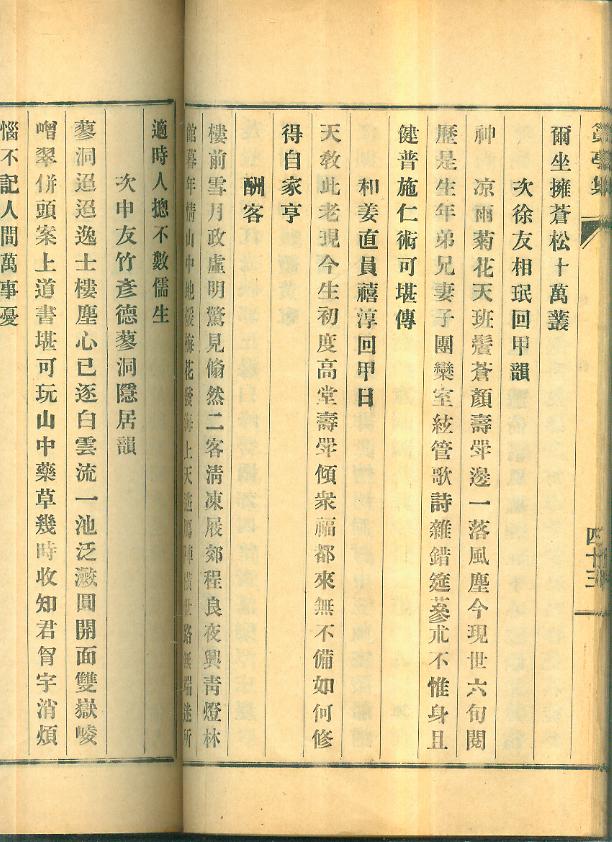 爾坐擁蒼松十萬叢
次徐友相珉回甲韻
神凉雨菊花天班鬢蒼顏壽觶邊一落風塵今現世六旬閱
歷是生年弟兄妻子團欒室絃管歌詩雜錯筵蔘朮不惟身且
健普施仁術可堪傳
和姜直員禧淳回甲日
天敎此老現今生初度高堂壽觶傾衆福都來無不備如何修
得自家亨
酬客
樓前雪月政虛明驚見翛然二客淸凍展郊程良夜興靑燈林
館暮年情山中地煖梅花發海上天遙鴈陣橫世路無端迷所
適時人摠不數儒生
次申友竹彥德蓼洞隱居韻
蓼洞迢迢逸士樓塵心已逐白雲流一池泛瀲圓開面雙嶽崚
嶒翠併頭案上道書堪可玩山中藥草幾時收知君胷宇消煩
惱不記人間萬事憂
四十三